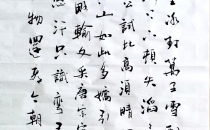 冰封萬里雪
頓失滔
公試比高須晴
山如此多嬌引
略輸文采唐宗宋
汗只識彎弓
物還看今朝